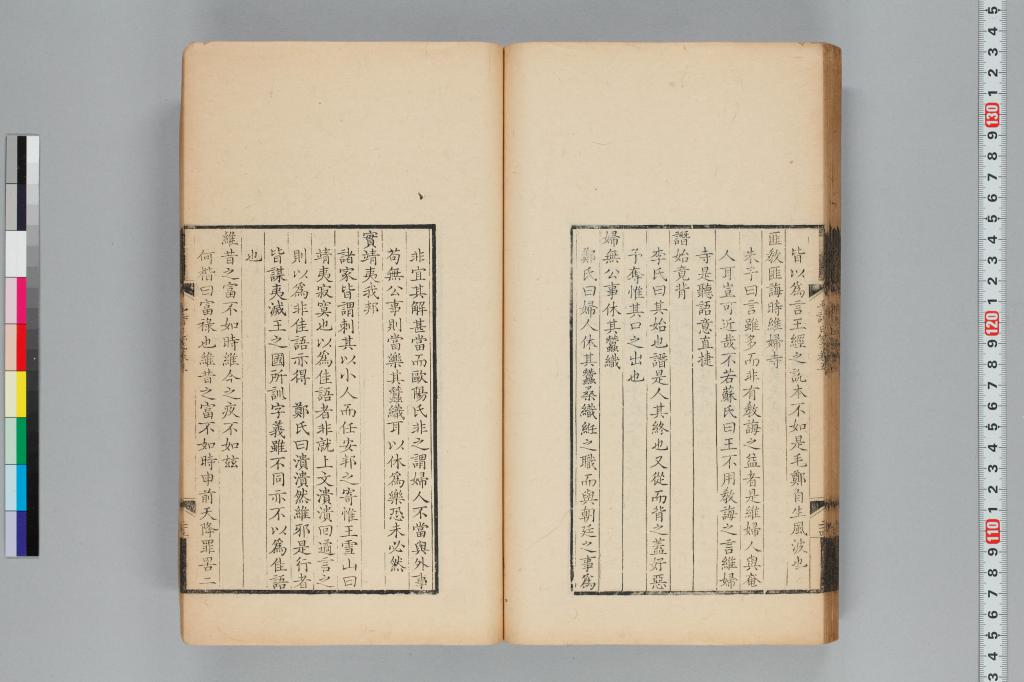 皆以為言王經之說本不如是毛鄭自生風波也
匪敎匪誨時維婦寺
朱子曰言雖多而非有敎誨之益者是維婦人與奄
人耳豈可近哉不若蘇氏曰王不用敎誨之言維婦
寺是聽語意直捷
譖始竟背
李氏曰其始也譖是人其終也又從而背之蓋好惡
予奪惟其口之出也
婦無公事休其蠶織
鄭氏曰婦人休其蠶桑織紝之職而與朝廷之事為
非宜其解甚當而歐陽氏非之謂婦人不當與外事
苟無公事則當樂其蠶織耳以休為樂恐未必然
實靖夷我邦
諸家皆謂刺其以小人而任安邦之寄惟王雪山曰
靖夷寂寞也以為佳語者非就上文潰潰回遹言之
則以為非佳語亦得 鄭氏曰潰潰然維邪是行者
皆謀夷滅王之國所訓字義雖不同亦不以為佳語
也
維昔之富不如時維今之疚不如玆
何楷曰富祿也維昔之富不如時申前天降罪罟二